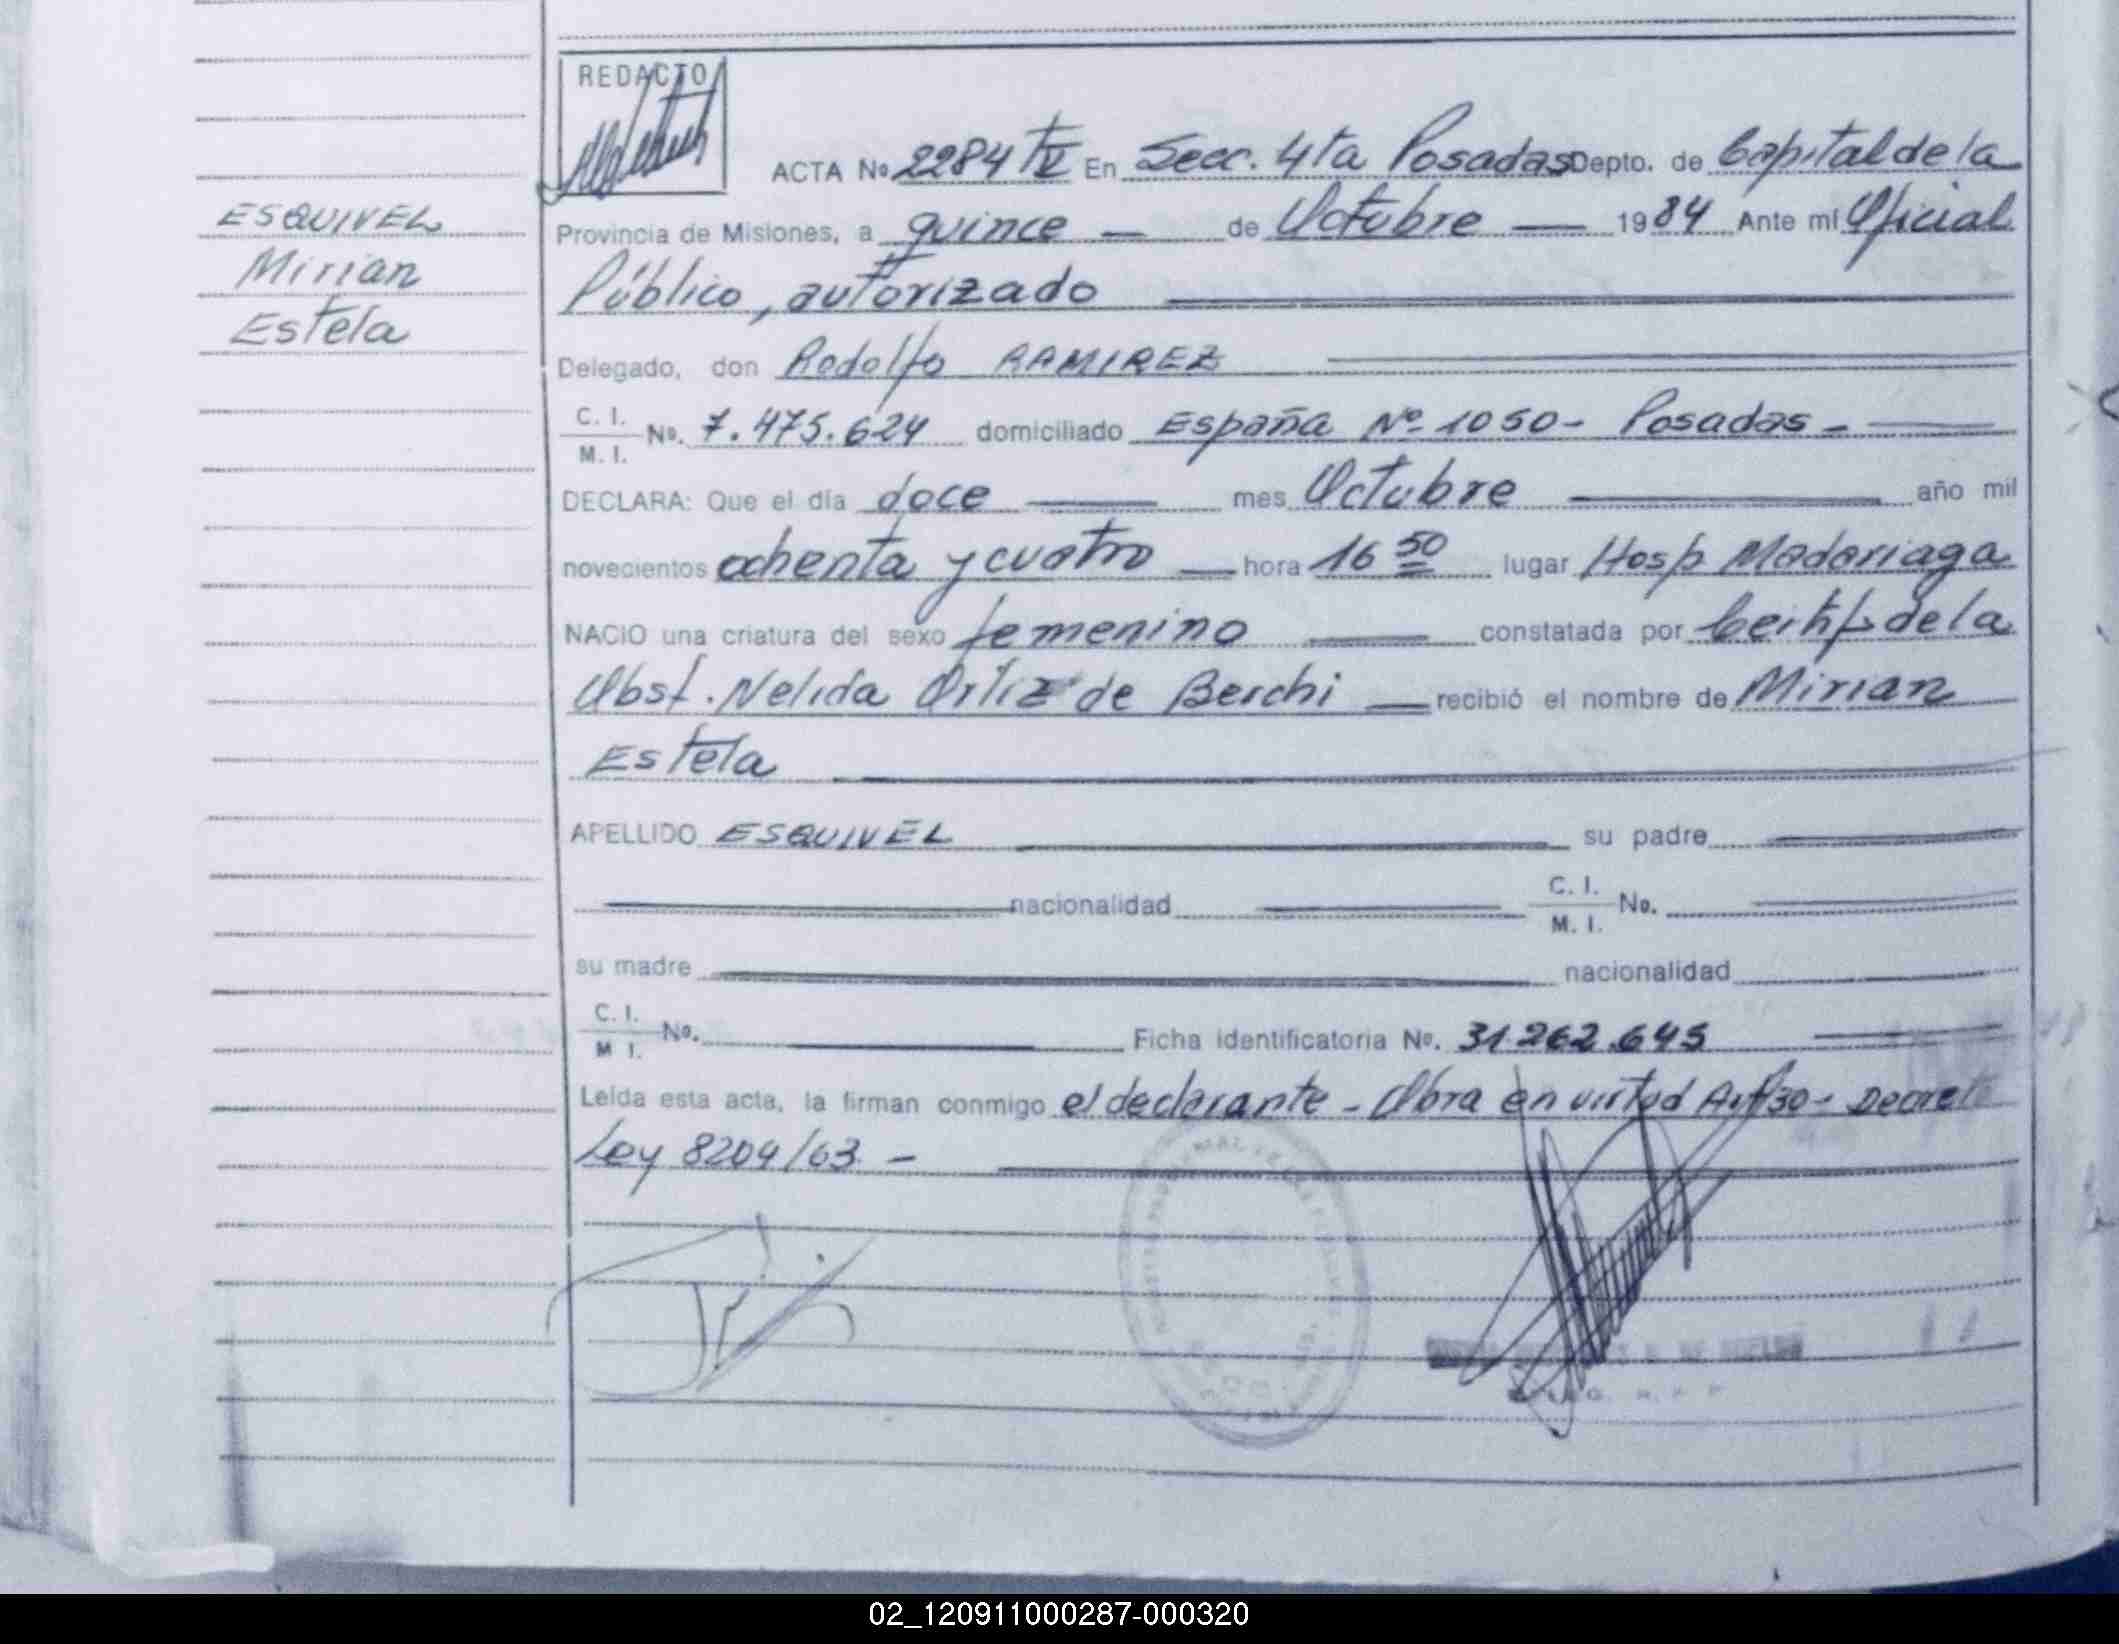 REDACTO
ACTA Nº 2284 TV En Secc. 4ta Posadas Depto. de Capital de la
ESQUIVEL
Mirian
Estela
Provincia de Misiones, a quince — de Octubre — 1984 Ante mí Oficial
Público, autorizado
Delegado, don Rodolfo RAMIREZ
C. I.
M. I. Nº. 7.475.624 domiciliado España Nº 1050 - Posadas -
DECLARA: Que el día doce — mes Octubre — año mil
novecientos ochenta y cuatro — hora 16 50 lugar Hosp Madariaga
NACIO una criatura del sexo femenino — constatada por Certif de la
Obst. Nelida Ortiz de Berchi — recibió el nombre de Mirian
Estela
APELLIDO ESQUIVEL — su padre
nacionalidad C. I.
M. I. No.
su madre nacionalidad
C. I.
M I. Nº. Ficha identificatoria Nº. 31.262.645
Leída esta acta, la firman conmigo el declarante - Obra en virtud Art 30 - Decreto
Ley 8204/63 -
02_120911000287-000320